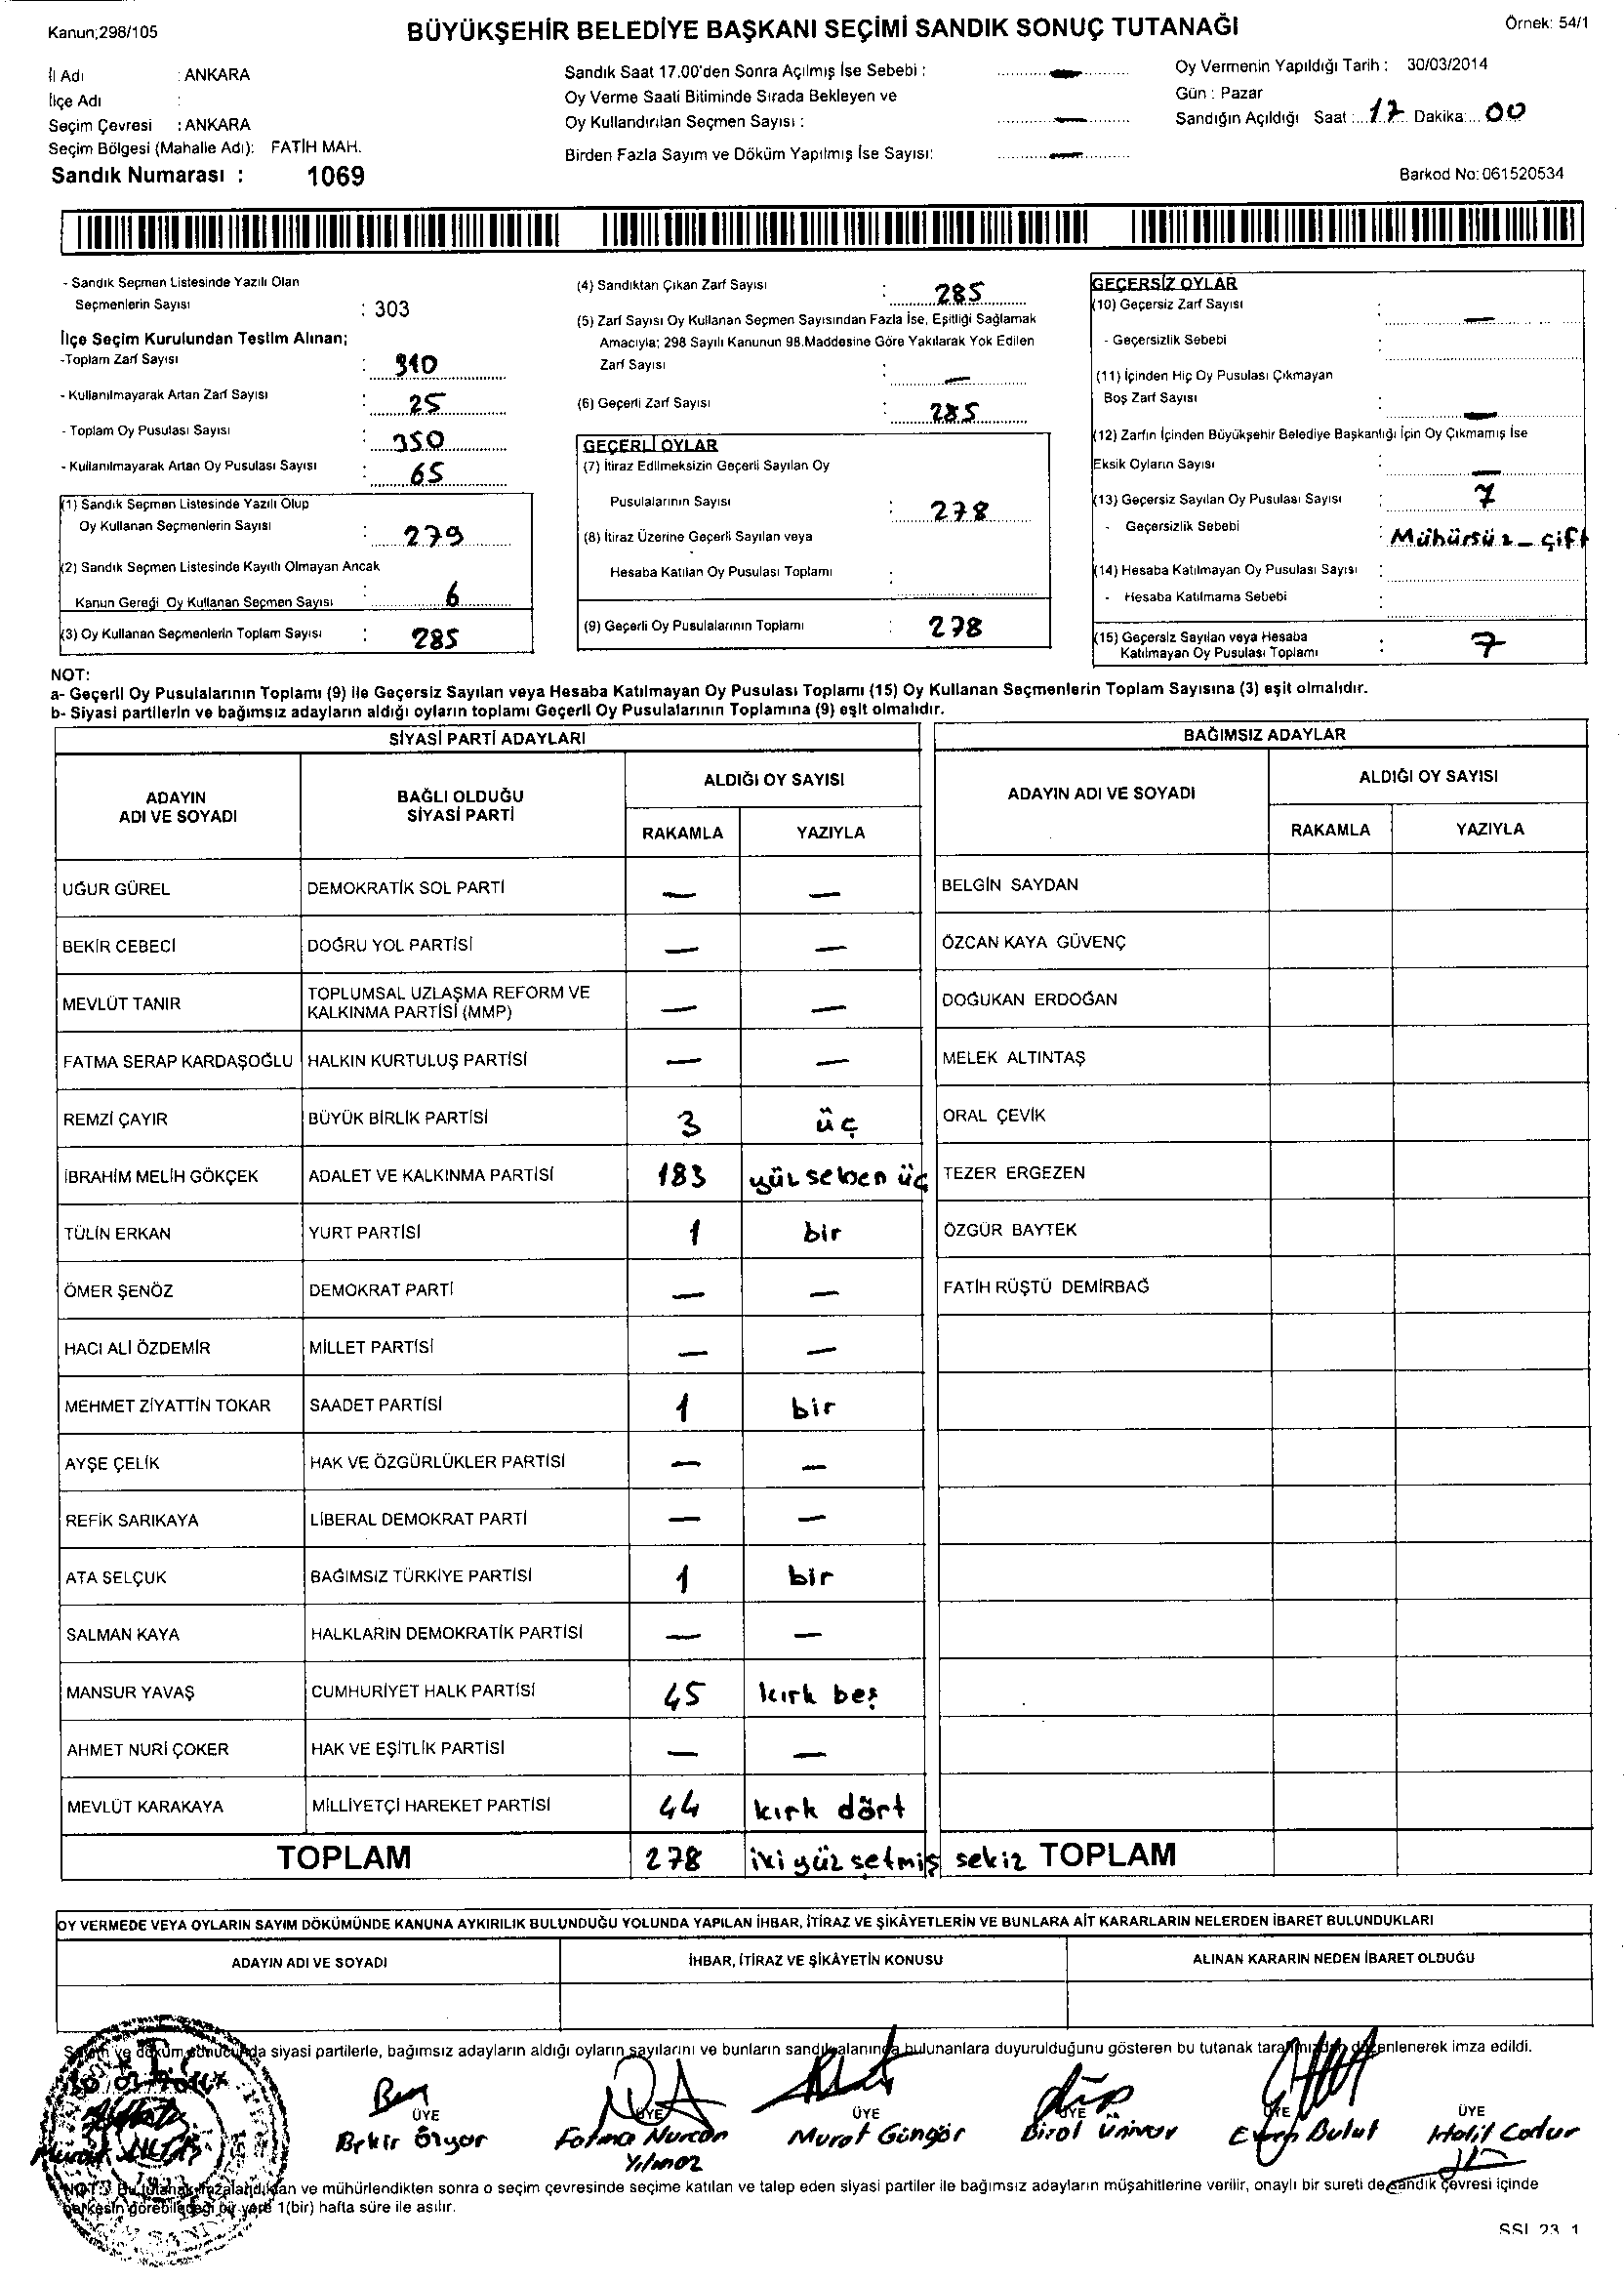 Kanun;298/105
BÜYÜKŞEHİR BELEDİYE BAŞKANI SEÇİMİ SANDIK SONUÇ TUTANAĞI
Örnek: 54/1
İl Adı : ANKARA
İlçe Adı :
Seçim Çevresi : ANKARA
Seçim Bölgesi (Mahalle Adı): FATİH MAH.
Sandık Numarası : 1069
Sandık Saat 17.00'den Sonra Açılmış İse Sebebi : —
Oy Verme Saati Bitiminde Sırada Bekleyen ve
Oy Kullandırılan Seçmen Sayısı : —
Birden Fazla Sayım ve Döküm Yapılmış İse Sayısı: —
Oy Vermenin Yapıldığı Tarih : 30/03/2014
Gün : Pazar
Sandığın Açıldığı Saat : 17 Dakika: 00
Barkod No: 061520534
- Sandık Seçmen Listesinde Yazılı Olan
Seçmenlerin Sayısı : 303
İlçe Seçim Kurulundan Teslim Alınan;
-Toplam Zarf Sayısı : 310
- Kullanılmayarak Artan Zarf Sayısı : 25
- Toplam Oy Pusulası Sayısı : 350
- Kullanılmayarak Artan Oy Pusulası Sayısı : 65
(1) Sandık Seçmen Listesinde Yazılı Olup
Oy Kullanan Seçmenlerin Sayısı : 279
(2) Sandık Seçmen Listesinde Kayıtlı Olmayan Ancak
Kanun Gereği Oy Kullanan Seçmen Sayısı : 6
(3) Oy Kullanan Seçmenlerin Toplam Sayısı : 285
(4) Sandıktan Çıkan Zarf Sayısı : 285
(5) Zarf Sayısı Oy Kullanan Seçmen Sayısından Fazla İse, Eşitliği Sağlamak
Amacıyla; 298 Sayılı Kanunun 98.Maddesine Göre Yakılarak Yok Edilen
Zarf Sayısı : —
(6) Geçerli Zarf Sayısı : 285
GEÇERLİ OYLAR
(7) İtiraz Edilmeksizin Geçerli Sayılan Oy
Pusulalarının Sayısı : 278
(8) İtiraz Üzerine Geçerli Sayılan veya
Hesaba Katılan Oy Pusulası Toplamı :
(9) Geçerli Oy Pusulalarının Toplamı : 278
GEÇERSİZ OYLAR
(10) Geçersiz Zarf Sayısı : —
- Geçersizlik Sebebi :
(11) İçinden Hiç Oy Pusulası Çıkmayan
Boş Zarf Sayısı : —
(12) Zarfın İçinden Büyükşehir Belediye Başkanlığı İçin Oy Çıkmamış İse
Eksik Oyların Sayısı : —
(13) Geçersiz Sayılan Oy Pusulası Sayısı : 7
- Geçersizlik Sebebi : Mühürsüz - çift
(14) Hesaba Katılmayan Oy Pusulası Sayısı :
- Hesaba Katılmama Sebebi :
(15) Geçersiz Sayılan veya Hesaba
Katılmayan Oy Pusulası Toplamı : 7
NOT:
a- Geçerli Oy Pusulalarının Toplamı (9) ile Geçersiz Sayılan veya Hesaba Katılmayan Oy Pusulası Toplamı (15) Oy Kullanan Seçmenlerin Toplam Sayısına (3) eşit olmalıdır.
b- Siyasi partilerin ve bağımsız adayların aldığı oyların toplamı Geçerli Oy Pusulalarının Toplamına (9) eşit olmalıdır.
SİYASİ PARTİ ADAYLARI
ADAYIN ADI VE SOYADI
BAĞLI OLDUĞU SİYASİ PARTİ
ALDIĞI OY SAYISI
RAKAMLA YAZIYLA
UĞUR GÜREL DEMOKRATİK SOL PARTİ — —
BEKİR CEBECİ DOĞRU YOL PARTİSİ — —
MEVLÜT TANIR TOPLUMSAL UZLAŞMA REFORM VE KALKINMA PARTİSİ (MMP) — —
FATMA SERAP KARDAŞOĞLU HALKIN KURTULUŞ PARTİSİ — —
REMZİ ÇAYIR BÜYÜK BİRLİK PARTİSİ 3 üç
İBRAHİM MELİH GÖKÇEK ADALET VE KALKINMA PARTİSİ 183 yüz seksen üç
TÜLİN ERKAN YURT PARTİSİ 1 bir
ÖMER ŞENÖZ DEMOKRAT PARTİ — —
HACI ALİ ÖZDEMİR MİLLET PARTİSİ — —
MEHMET ZİYATTİN TOKAR SAADET PARTİSİ 1 bir
AYŞE ÇELİK HAK VE ÖZGÜRLÜKLER PARTİSİ — —
REFİK SARIKAYA LİBERAL DEMOKRAT PARTİ — —
ATA SELÇUK BAĞIMSIZ TÜRKİYE PARTİSİ 1 bir
SALMAN KAYA HALKLARIN DEMOKRATİK PARTİSİ — —
MANSUR YAVAŞ CUMHURİYET HALK PARTİSİ 45 kırk beş
AHMET NURİ ÇOKER HAK VE EŞİTLİK PARTİSİ — —
MEVLÜT KARAKAYA MİLLİYETÇİ HAREKET PARTİSİ 44 kırk dört
TOPLAM 278 iki yüz yetmiş sekiz
BAĞIMSIZ ADAYLAR
ADAYIN ADI VE SOYADI
ALDIĞI OY SAYISI
RAKAMLA YAZIYLA
BELGİN SAYDAN
ÖZCAN KAYA GÜVENÇ
DOĞUKAN ERDOĞAN
MELEK ALTINTAŞ
ORAL ÇEVİK
TEZER ERGEZEN
ÖZGÜR BAYTEK
FATİH RÜŞTÜ DEMİRBAĞ
TOPLAM
OY VERMEDE VEYA OYLARIN SAYIM DÖKÜMÜNDE KANUNA AYKIRILIK BULUNDUĞU YOLUNDA YAPILAN İHBAR, İTİRAZ VE ŞİKÂYETLERİN VE BUNLARA AİT KARARLARIN NELERDEN İBARET BULUNDUKLARI
ADAYIN ADI VE SOYADI
İHBAR, İTİRAZ VE ŞİKÂYETİN KONUSU
ALINAN KARARIN NEDEN İBARET OLDUĞU
Sayım ve döküm sonucunda siyasi partilerle, bağımsız adayların aldığı oyların sayılarını ve bunların sandık alanında bulunanlara duyurulduğunu gösteren bu tutanak tarafımızdan düzenlenerek imza edildi.
ÜYE ÜYE ÜYE ÜYE ÜYE ÜYE
Bekir Özyar Fatma Nurcan Yılmaz Murat Güngör Birol Ünüvar Evren Bulut Halit
NOT: Bu tutanak imzalandıktan ve mühürlendikten sonra o seçim çevresinde seçime katılan ve talep eden siyasi partiler ile bağımsız adayların müşahitlerine verilir, onaylı bir sureti de sandık çevresi içinde
herkesin görebileceği bir yere 1(bir) hafta süre ile asılır.
SSI 23 1